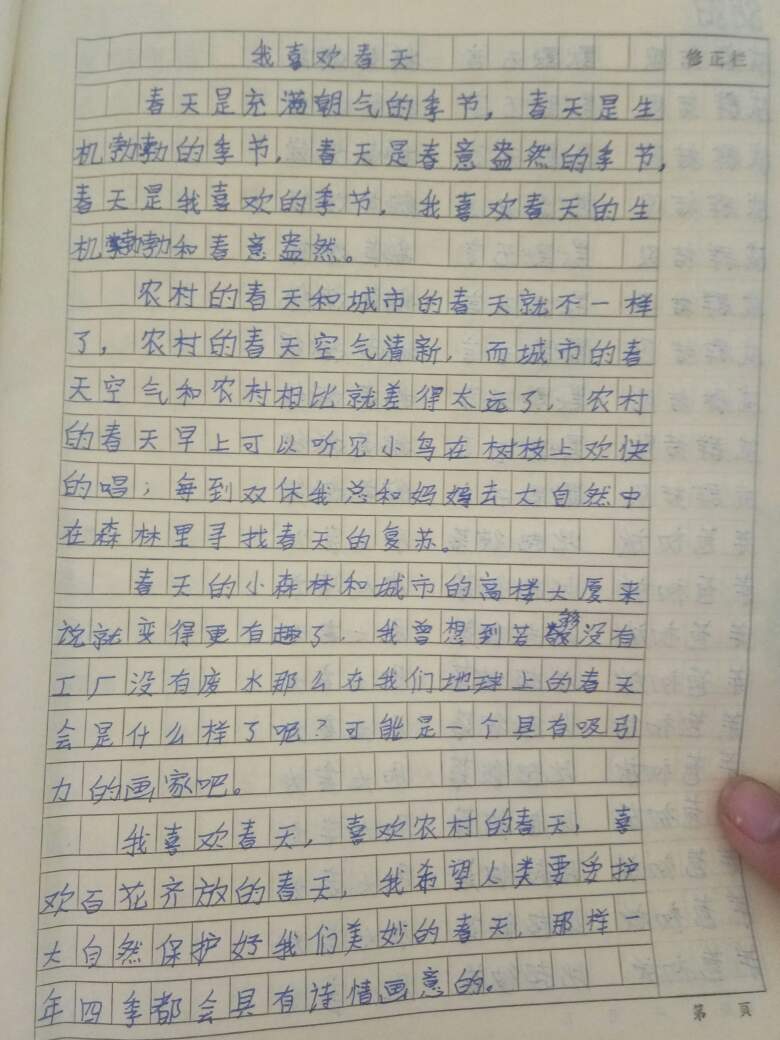 我喜欢春天
修正栏
春天是充满朝气的季节，春天是生
机勃勃的季节，春天是春意盎然的季节，
春天是我喜欢的季节，我喜欢春天的生
机勃勃和春意盎然。
农村的春天和城市的春天就不一样
了，农村的春天空气清新，而城市的春
天空气和农村相比就差得太远了，农村
的春天早上可以听见小鸟在树枝上欢快
的唱；每到双休我总和妈妈去大自然中
在森林里寻找春天的复苏。
春天的小森林和城市的高楼大厦来
说就变得更有趣了，我曾想到若没有
工厂没有废水那么在我们地球上的春天
会是什么样了呢？可能是一个具有吸引
力的画家吧。
我喜欢春天，喜欢农村的春天，喜
欢百花齐放的春天，我希望人类要爱护
大自然保护好我们美妙的春天，那样一
年四季都会具有诗情画意的。
第 页